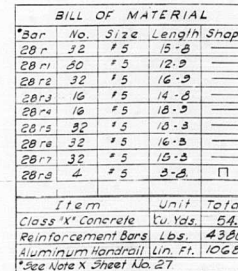 BILL OF MATERIAL
*Bar No. Size Length Shap
28 r 32 #5 15-8
28 r1 80 #5 12-9
28 r2 32 #5 16-9
28 r3 16 #5 14-8
28 r4 16 #5 18-9
28 r5 32 #5 18-3
28 r6 32 #5 16-3
28 r7 32 #5 15-3
28 r8 4 #5 3-8
Item Unit Tota
Class "X" Concrete Cu. Yds. 54.
Reinforcement Bars Lbs. 438
Aluminum Handrail Lin. Ft. 106
*See Note X Sheet No. 27